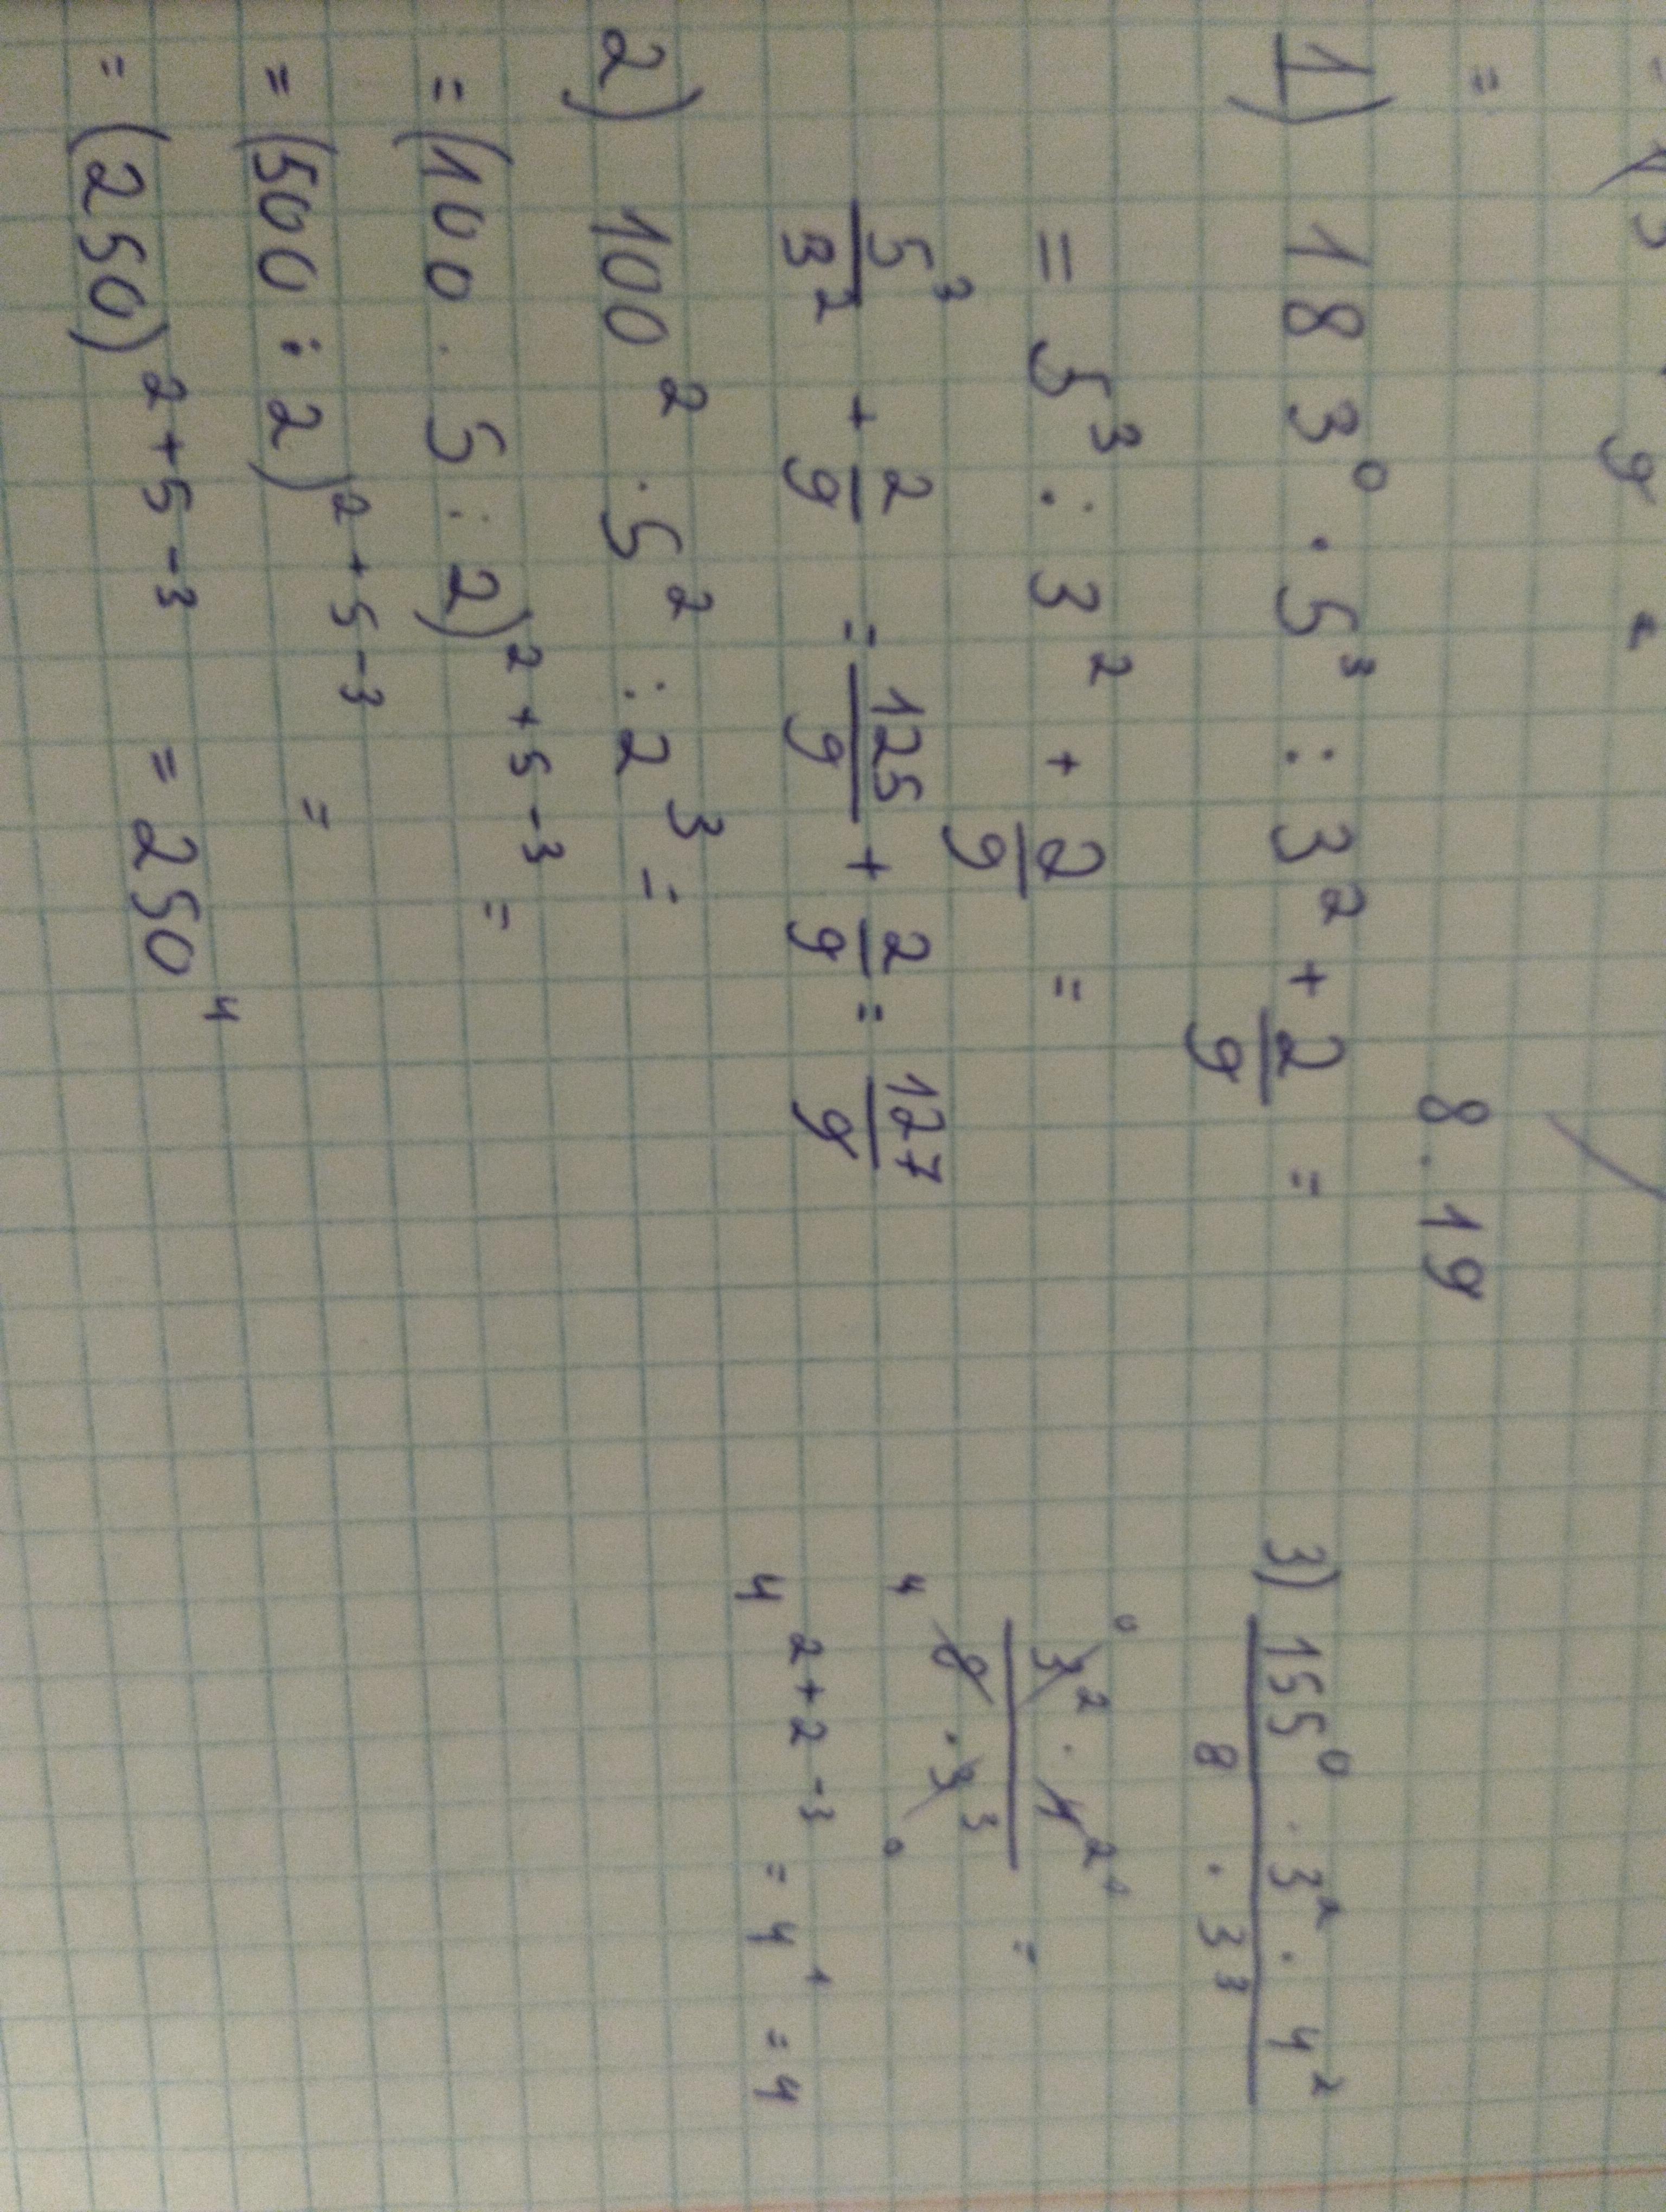 8.19
1) 183⁰ · 5³ : 3² + 2/9 =
= 5³ : 3² + 2/9 =
5³/3² + 2/9 = 125/9 + 2/9 = 127/9
2) 100² · 5² : 2³ =
= (100 · 5 : 2)²⁺⁵⁻³ =
= (500 : 2)²⁺⁵⁻³ =
= (250)²⁺⁵⁻³ = 250⁴
3) 155⁰ · 3² · 4² / 8 · 3³
3² · 4² / 8 · 3³ =
4²⁺²⁻³ = 4¹ = 4